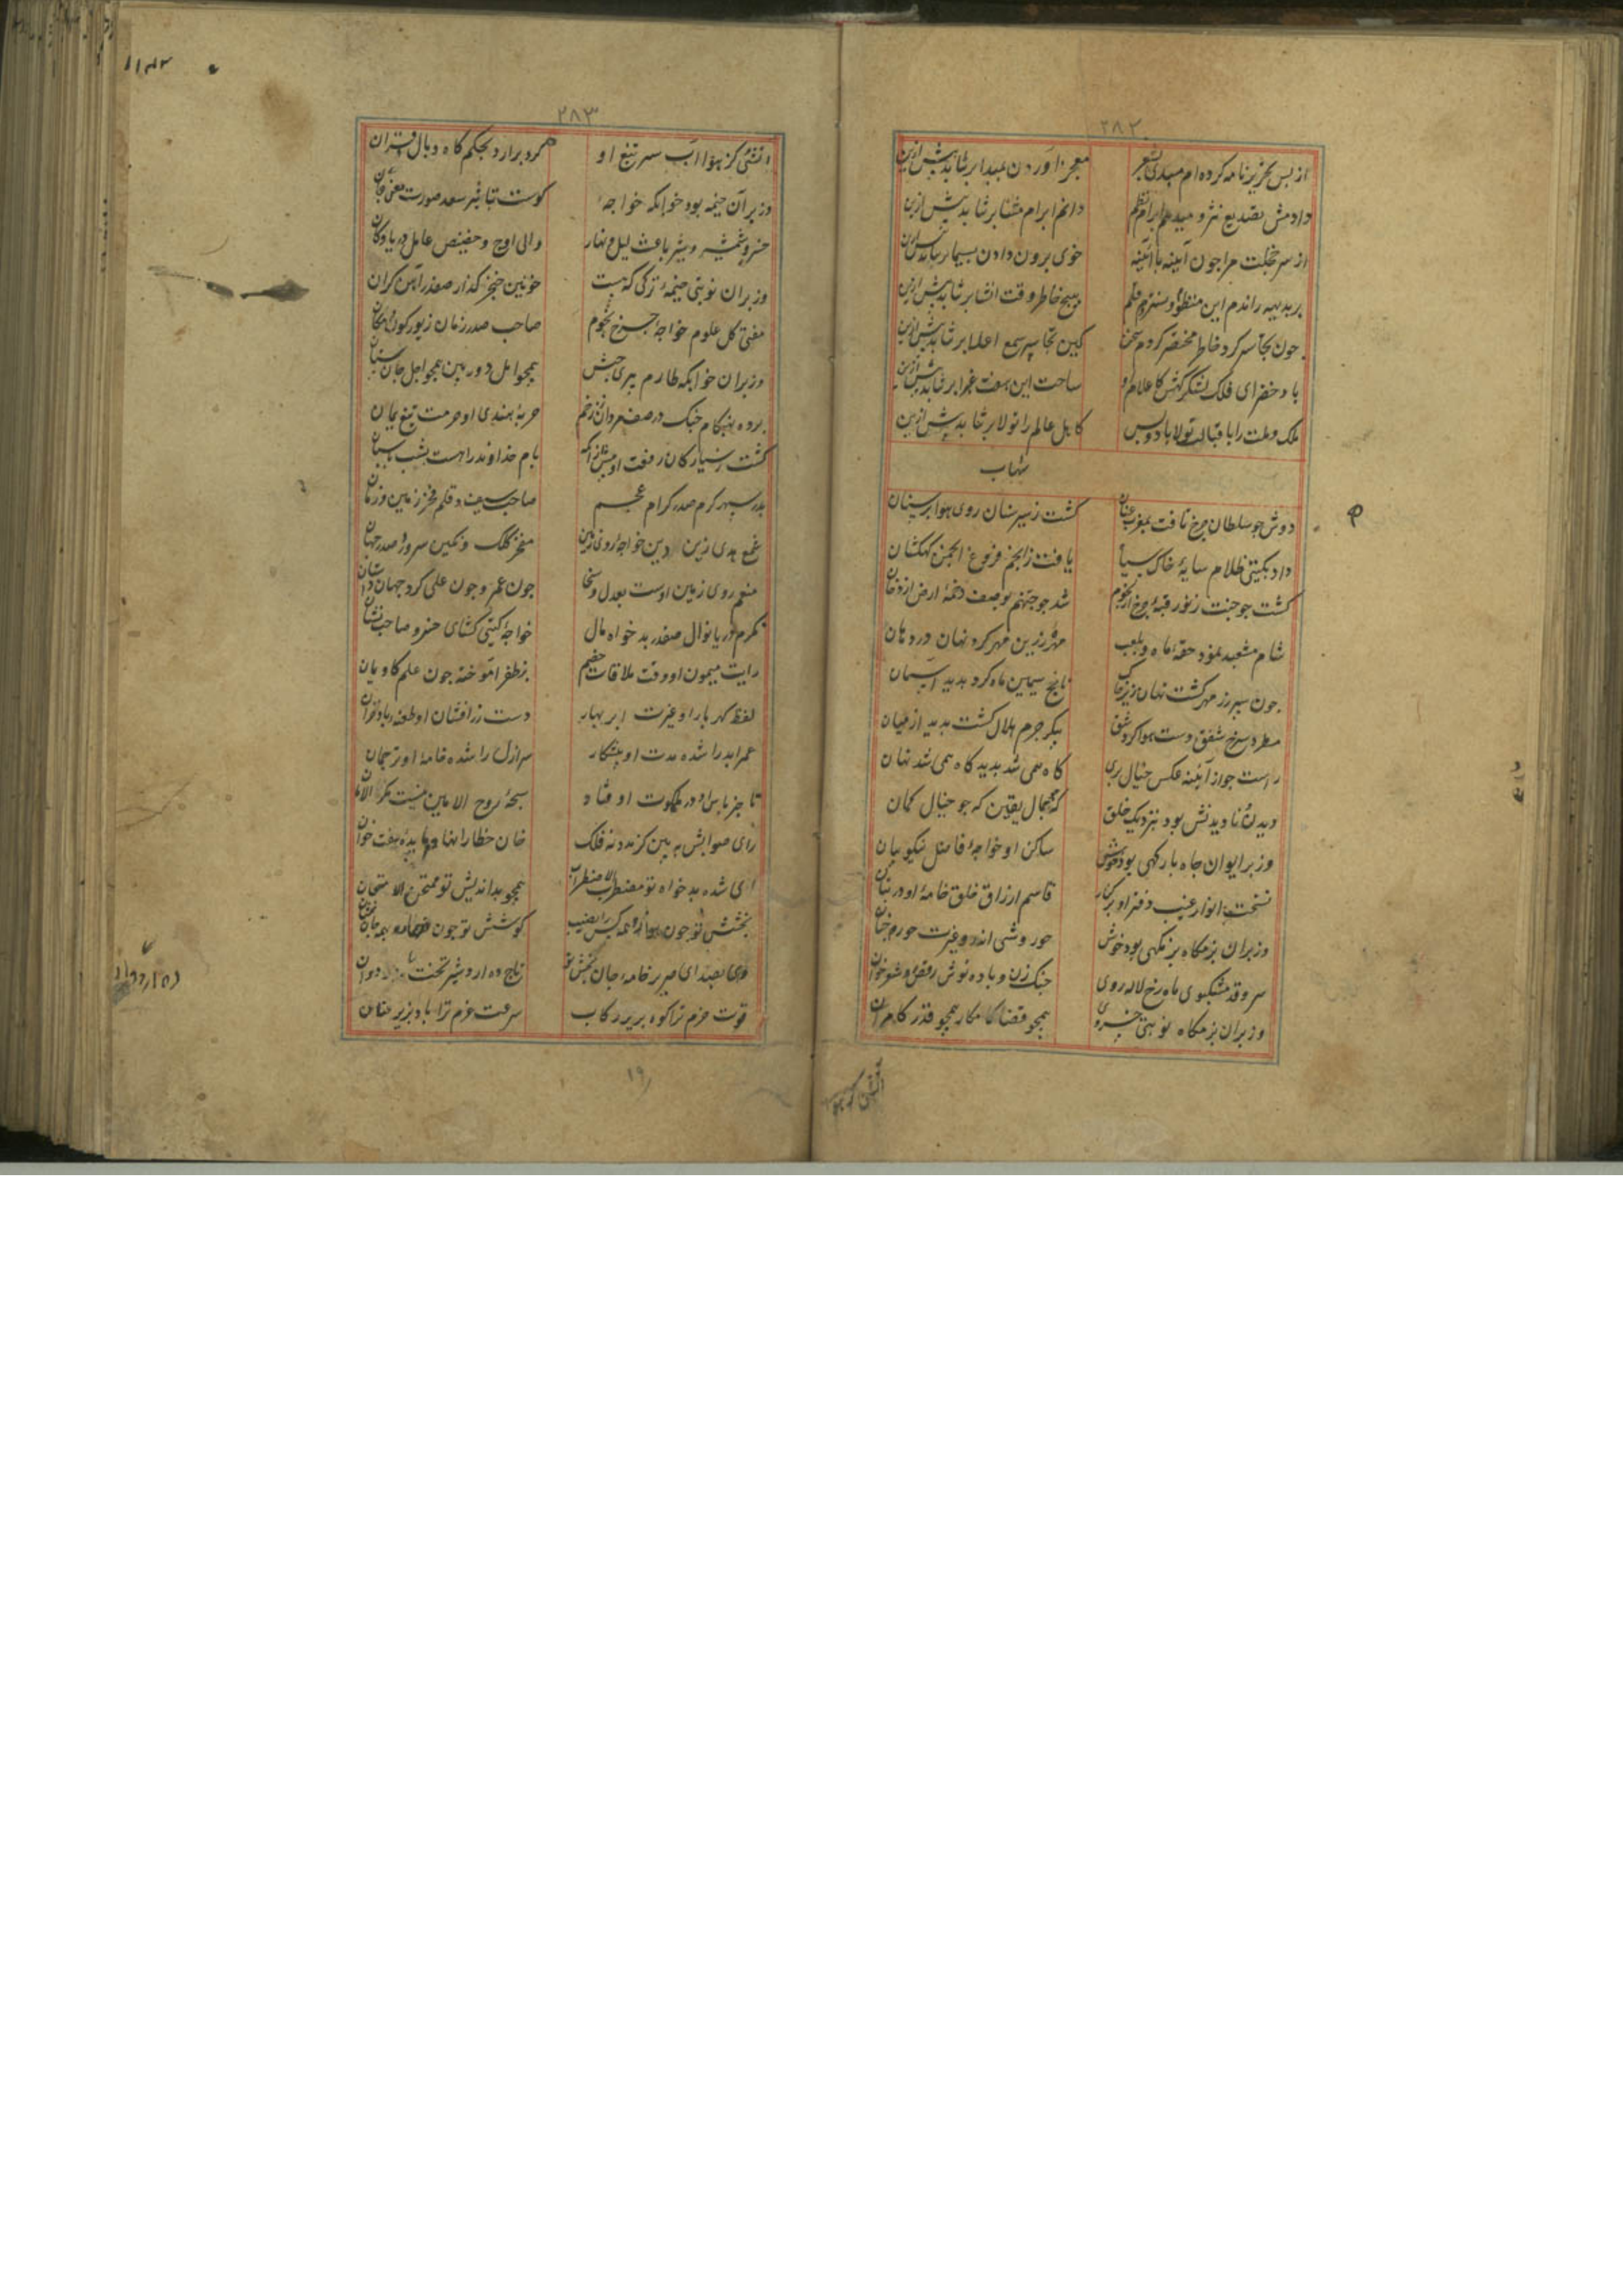 ۲۸۲
از بس بخریزنامه کرده‌ام مبدی بشعر معجز آوردن بر نتابد بیش ازین
دادمش تصدیع نثر و میدهم ابرام نظم دانم ابرام مثنا بر نتابد بیش ازین
از سر خجلت مرا چون آینه با آینه خوی برون دادن بسیما بر نتابد بیش ازین
بر بدیهه راندم این منظوم و بستردم قلم هیچ خاطر وقت انشا بر نتابد بیش ازین
چون تجاسر کرد خاطر مختصر کردم سخن کین تجاسر سمع اعلا بر نتابد بیش ازین
باد خضرای فلک لشکرگهش کاعلام او ساحت این هفت غبرا بر نتابد بیش ازین
ملک و ملت را باقبالت تولا باد و بس کاهل عالم را تولا بر نتابد بیش ازین
شهاب
دوش جو سلطان چرخ تافت بمغرب عنان گشت ز سیر سنان روی هوا پر سنان
داد بگیتی ظلام سایهٔ خاک سیاه یافت ز انجم فروغ انجمن کهکشان
گشت جو جنت ز نور قبهٔ چرخ از نجوم شد جو جهنم بوصف دخمهٔ ارض از دخان
شام مشعبد نمود حقهٔ ماه و بلعب مهرهٔ زرین مهر کرد نهان در دهان
چون سپر زر مهر گشت نهان زیر خاک ناچخ سیمین ماه کرد بدید آسمان
مطرد سرخ شفق دست هوا کرد شق پیکر جرم هلال گشت بدید از میان
راست جو از آینه عکس خیال پری گاه همی شد بدید گاه همی شد نهان
دیدن و نادیدنش بود بنزدیک خلق گه بجمال یقین که جو خیال گمان
وز بر ایوان ماه بارگهی بود خوش ساکن او خواجهٔ فاضل نیکو بیان
نسخت انوار غیب دفتر او بر کنار قاسم ارزاق خلق خامهٔ او در بنان
وز بر آن بزمگاه بزمگهی بود خوش حوروشی اندرو غیرت حور جنان
سرو قد مشکبوی ماه رخ لاله روی چنک زن و باده نوش رقص و شعر خوان
وز بر آن بزمگاه نوبتی خسروی همچو قضا کامکار همچو قدر کامران
۲۸۳
آتش کز هوا آب سر تیغ او گرد برارد بحکم گاه وبال و قران
وز بر آن خیمه بود خوابگه خواجهٔ کوست بتاثیر سعد صورت معنی جان
خسرو شمشیر و شیر باعث لیل و نهار والی اوج و حضیض عامل دریا و کان
وز بر آن نوبتی خیمهٔ ترکی که هست خونین خنجر گذار صفدر آهن کران
مفتی کل علوم خواجهٔ چرخ نجوم صاحب صدر زمان زیور کون و مکان
وز بر آن خوابگه طارم پیری حبش همچو امل دور بین همچو اجل جان ستان
برده بهنگام جنک در صف مردان ز زخم حربهٔ هندی او حرمت تیغ یمان
گشت ز سیارگان رفعت او بیش از آنکه بام خداوند را هست بشب پاسبان
بدر سپهر کرم صدر کرام عجم صاحب سیف و قلم فخر زمین و زمان
شمع هدی زین دین خواجهٔ روی زمین مفخر کلک و نگین سرور و صدر جهان
منعم روی زمین اوست بعدل و سخا چون عمر و چون علی کرد جهان داد شان
مکرم دریا نوال صفدر بدخواه مال خواجهٔ گیتی گشای خسرو صاحب نشان
رایت میمون او وقت ملاقات خصم بر ظفر آموخته چون علم کاویان
لفظ گهربار او غیرت ابر بهار دست زر افشان او طعنهٔ باد خزان
عمر ابد را شده مدت او پیشکار سر ازل را شده خامهٔ او ترجمان
تا خبر باس او در ملکوت اوفتاد سبحهٔ روح الامین نیست مگر الامان
رای صوابش به بین کز مدد نه فلک خان خطا را نهاد مایدهٔ هفت خوان
ای شده بدخواه تو مضطرب الاضطراب همچو بداندیش تو ممتحن الامتحان
بخشش تو چون هوا زو همه کس را نصیب کوشش تو چون قضا زو همه جا نشان
وی بصدای صریر خامهٔ جان بخش تو تاج ده اردشیر تخت
قوت حزم ترا کوه بزیر رکاب سرعت عزم ترا باد بزیر عنان
آتشی کز هوا
۱۹